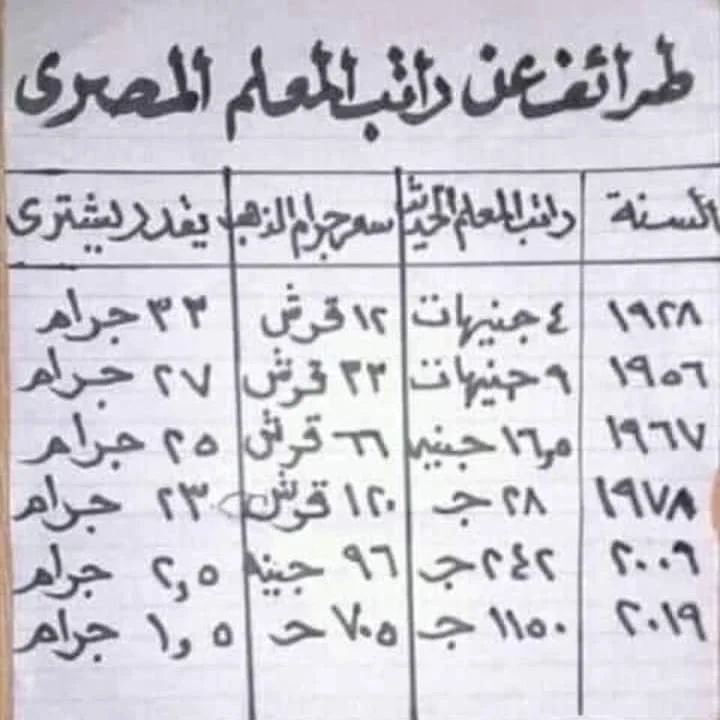 طرائف عن راتب المعلم المصرى
السنة راتب المعلم الحديث سعر جرام الذهب يقدر يشترى
١٩٢٨ ٤ جنيهات ١٢ قرش ٣٣ جرام
١٩٥٦ ٩ جنيهات ٣٣ قرش ٢٧ جرام
١٩٦٧ ١٦,٥ جنيه ٦٦ قرش ٢٥ جرام
١٩٧٨ ٢٨ جـ ١٢٠ قرش ٢٣ جرام
٢٠٠٦ ٢٤٢ جـ ٩٦ جينه ٢,٥ جرام
٢٠١٩ ١١٥٠ جـ ٧٠٥ حـ ١,٥ جرام